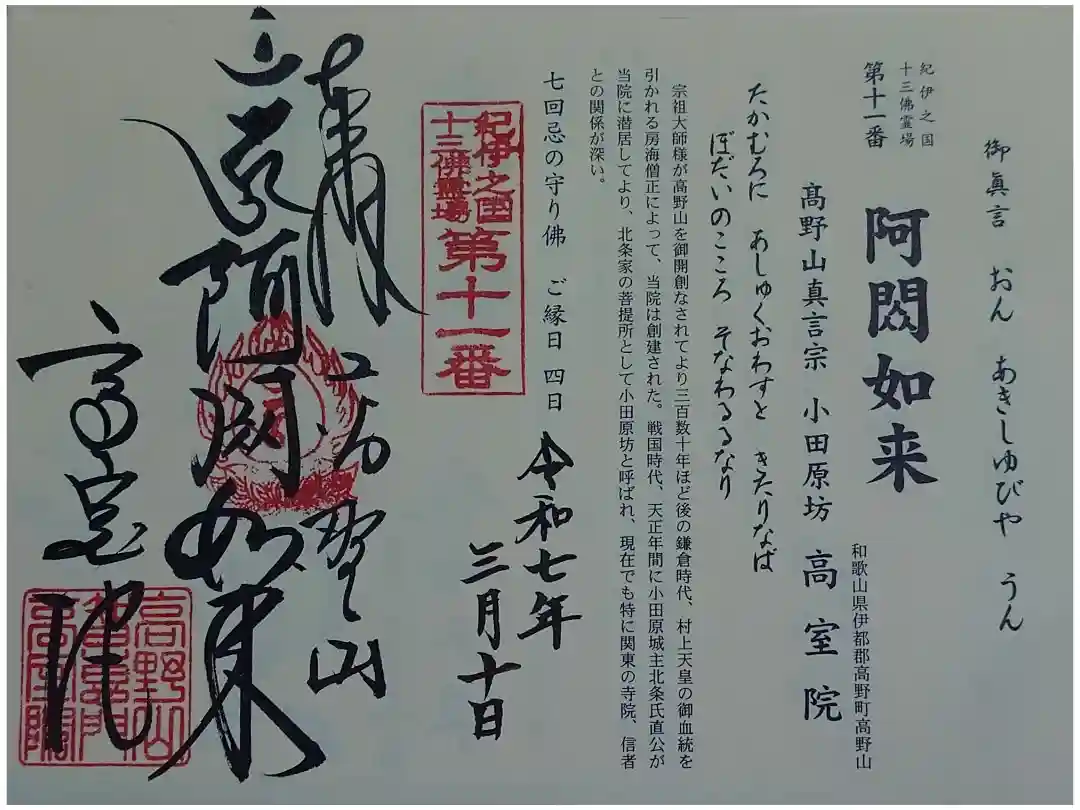 御眞言 おん あきしゆびや うん
紀伊之国
十三佛霊場
第十一番 阿閦如来
和歌山県伊都郡高野町高野山
髙野山真言宗 小田原坊 高室院
たかむろに あしゅくおわすと きたりなば
ぼだいのこころ そなわるるなり
宗祖大師様が高野山を御開創なされてより三百数十年ほど後の鎌倉時代、村上天皇の御血統を
引かれる房海僧正によって、当院は創建された。戦国時代、天正年間に小田原城主北条氏直公が
当院に潜居してより、北条家の菩提所として小田原坊と呼ばれ、現在でも特に関東の寺院、信者
との関係が深い。
七回忌の守り佛 ご縁日 四日
令和七年
三月十日
紀伊之国
十三佛霊場
第十一番
奉拝
高野山
阿閦如来
高室院
高野山
高室院